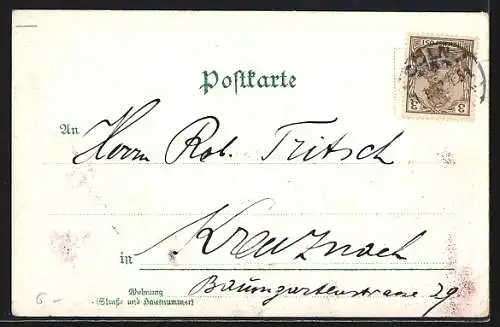 Postkarte
An Herrn Rob. Tritsch
in Kreuznach
Wohnung
(Straße und Hausnummer)
Baumgartenstrasse 29.
6 -
CÖLN
3 3